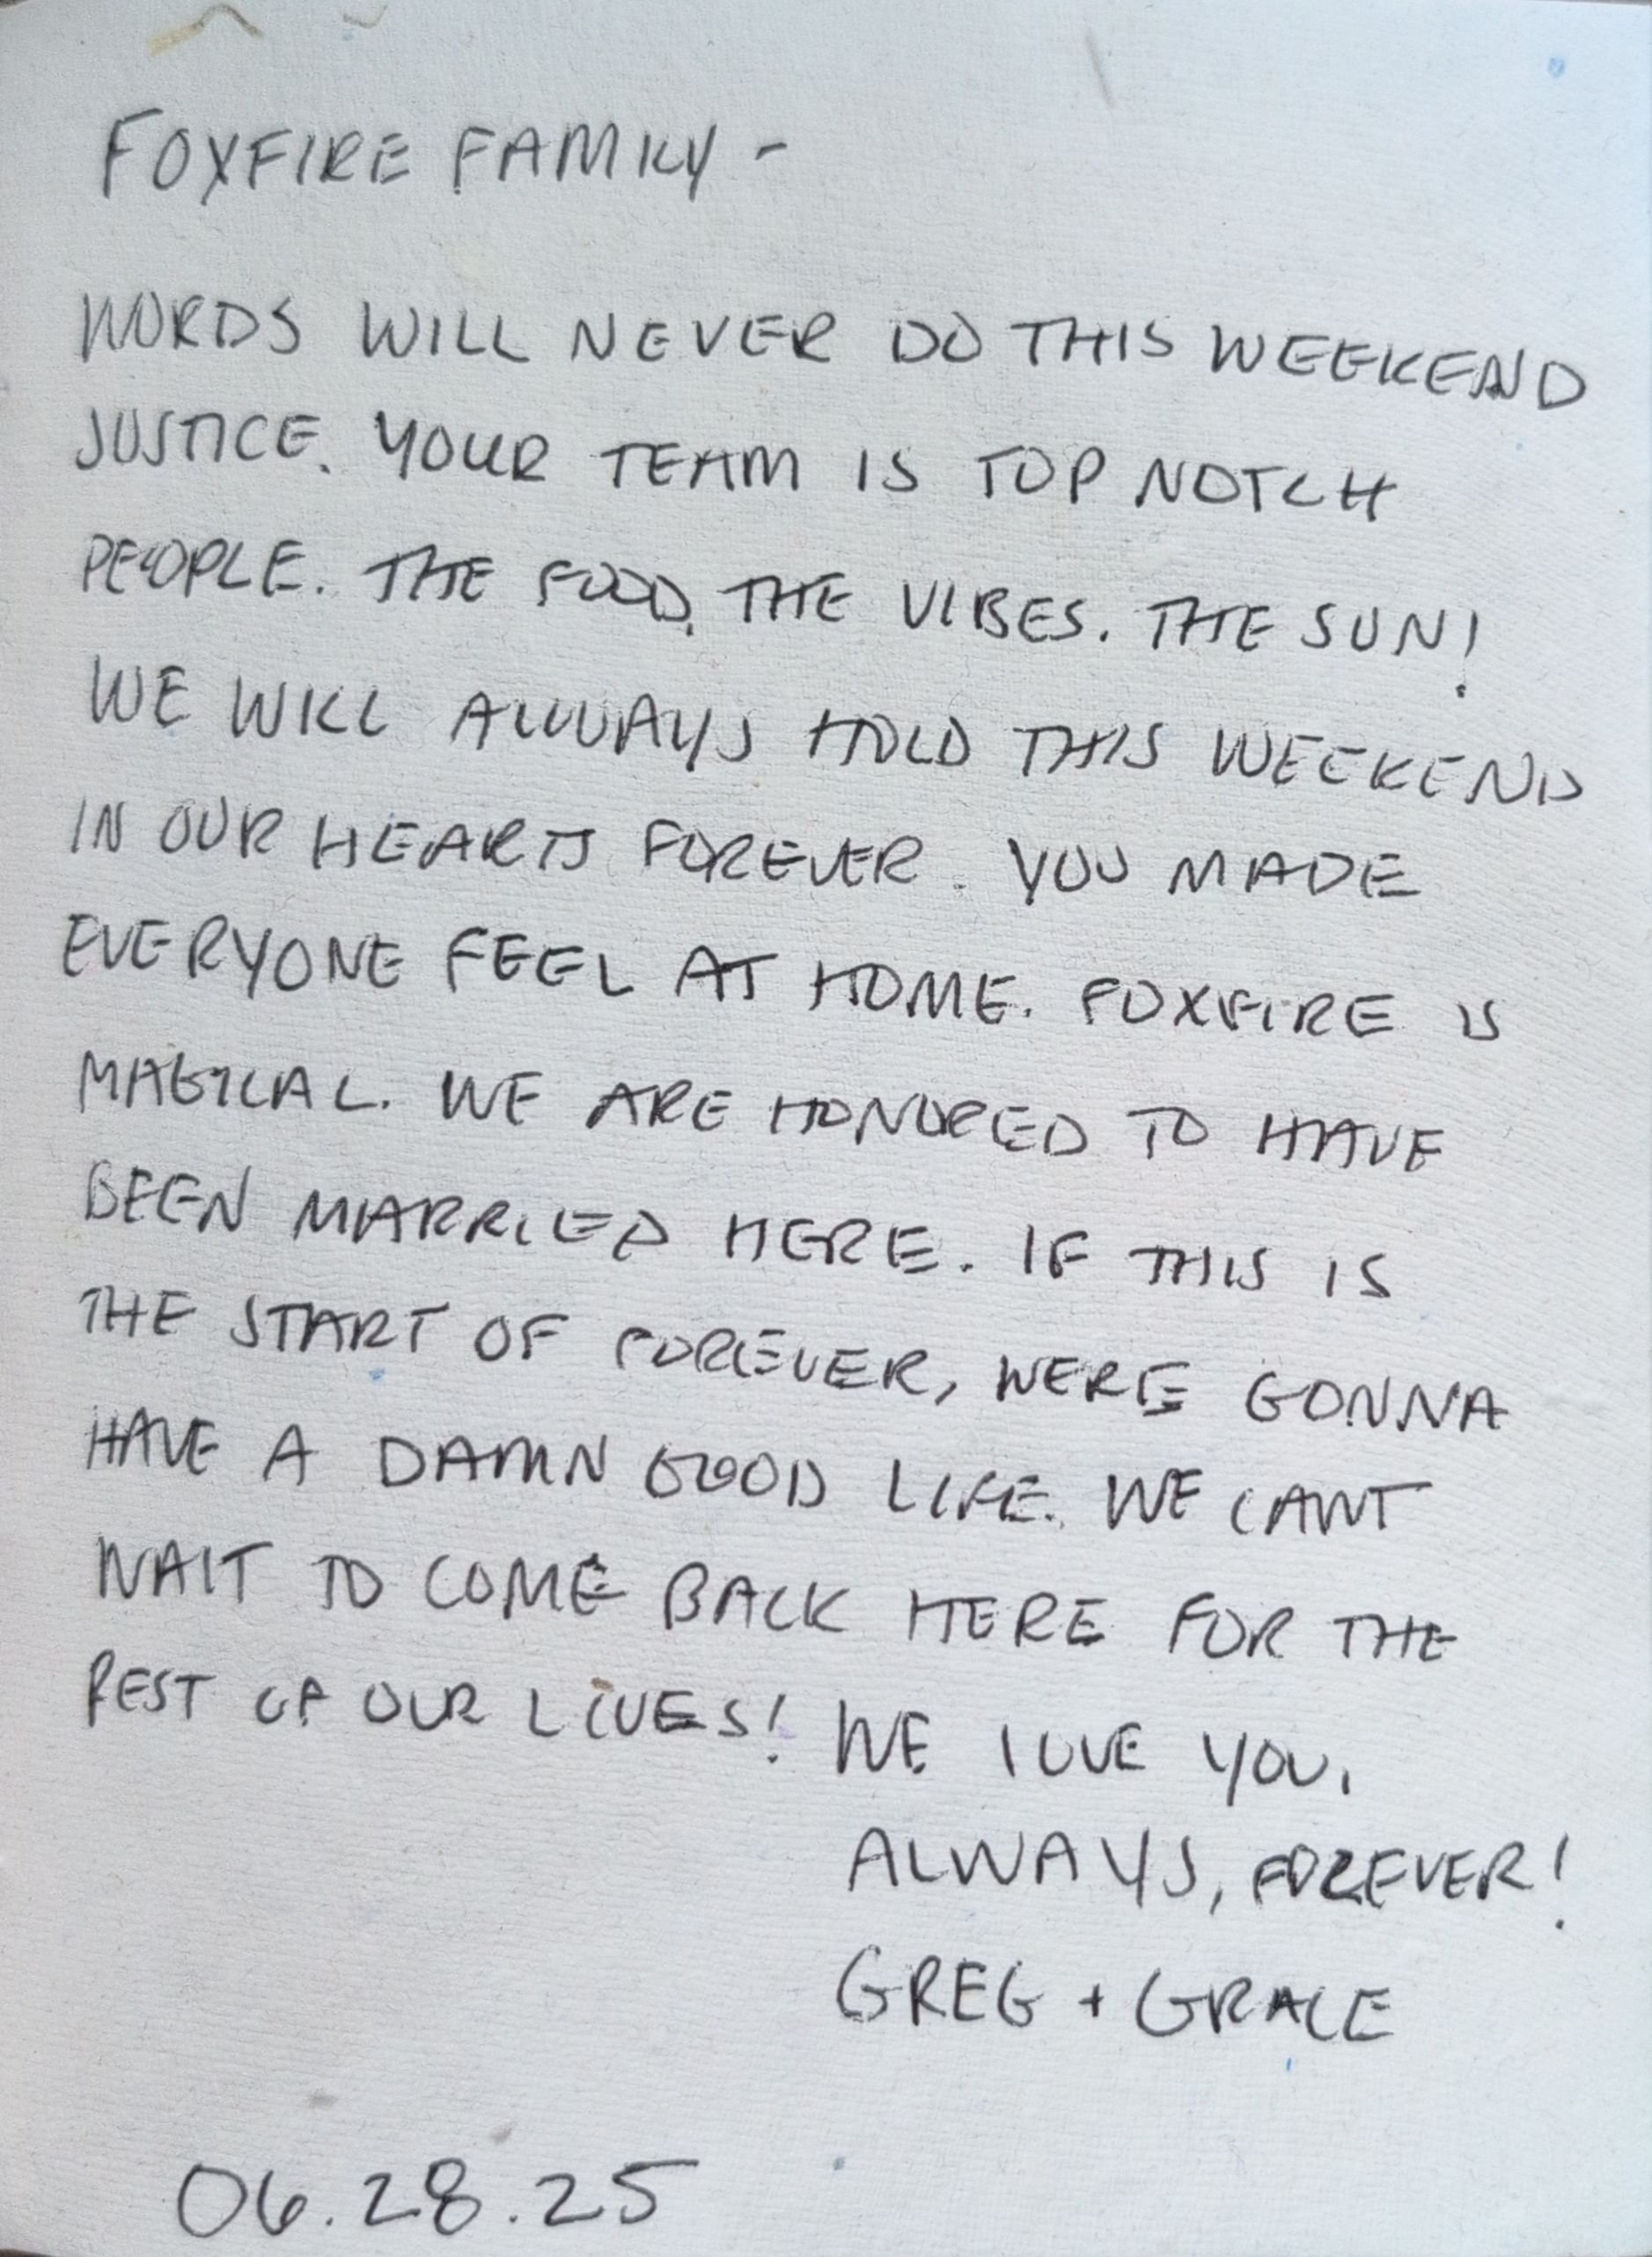 FOXFIRE FAMILY -
WORDS WILL NEVER DO THIS WEEKEND
JUSTICE. YOUR TEAM IS TOP NOTCH
PEOPLE. THE FOOD. THE VIBES. THE SUN!
WE WILL ALWAYS HOLD THIS WEEKEND
IN OUR HEARTS FOREVER. YOU MADE
EVERYONE FEEL AT HOME. FOXFIRE IS
MAGICAL. WE ARE HONORED TO HAVE
BEEN MARRIED HERE. IF THIS IS
THE START OF FOREVER, WERE GONNA
HAVE A DAMN GOOD LIFE. WE CANT
WAIT TO COME BACK HERE FOR THE
REST OF OUR LIVES! WE LOVE YOU.
ALWAYS, FOREVER!
GREG + GRACE
06.28.25